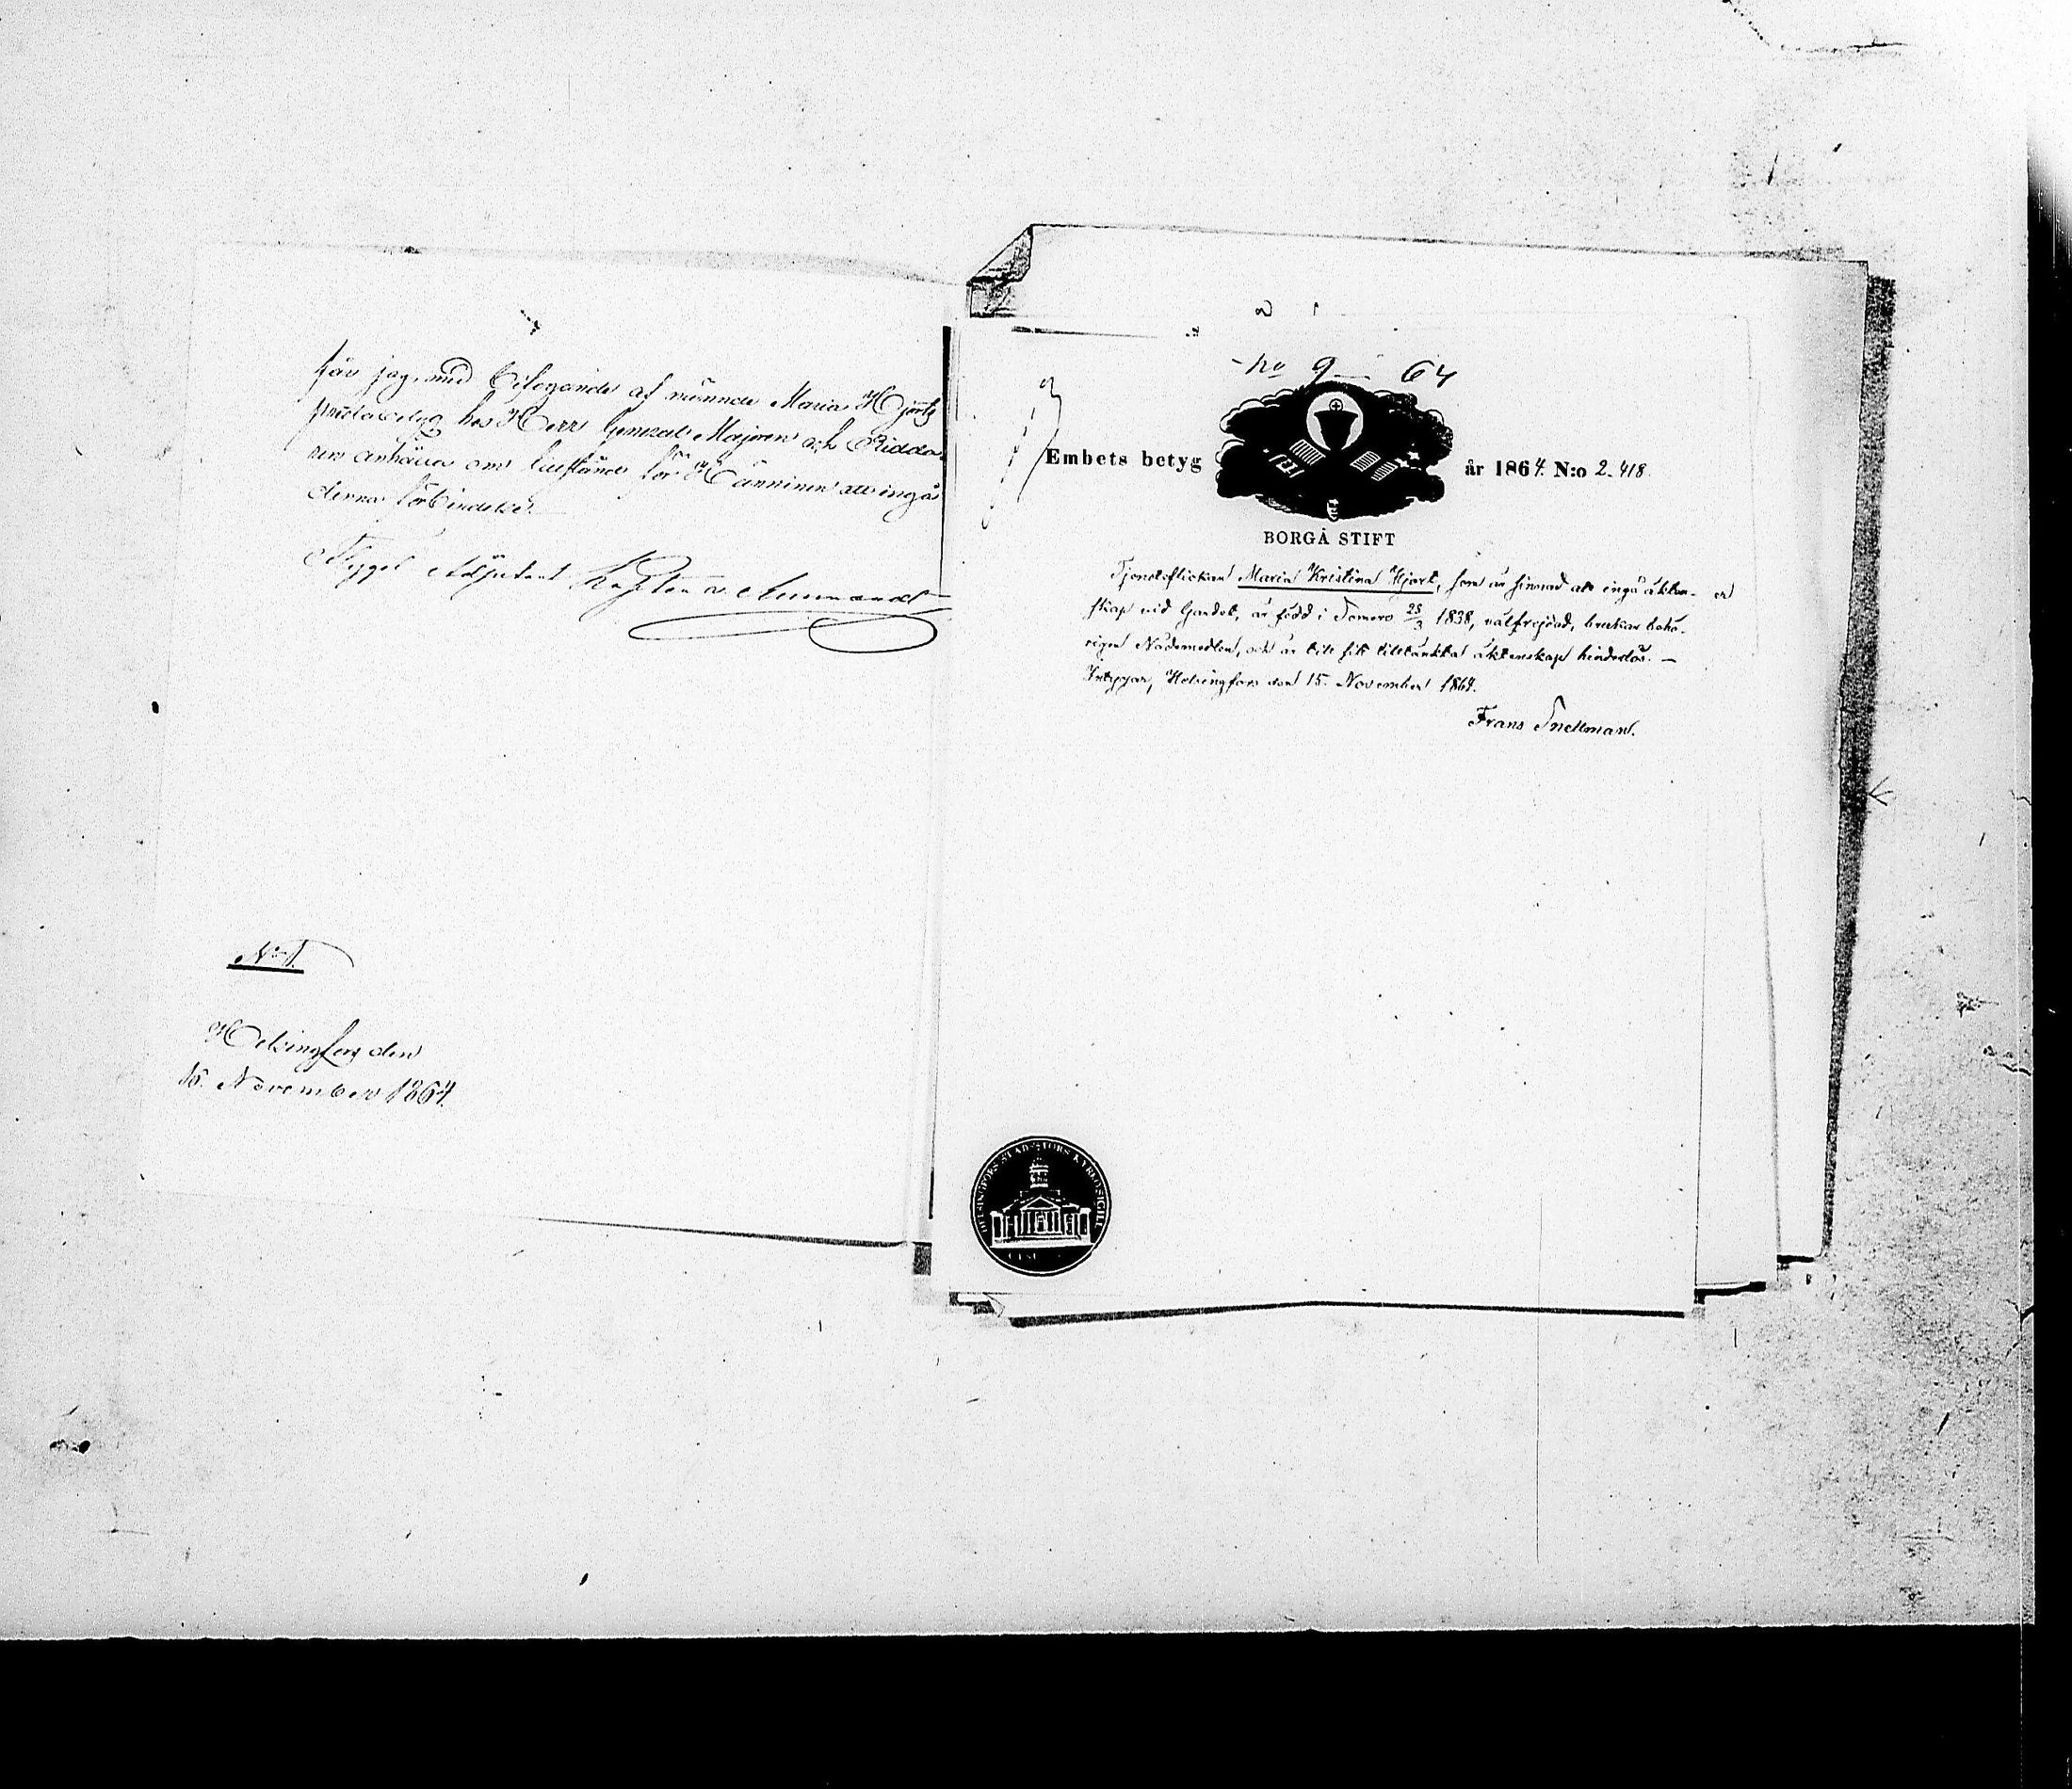 får jag, med bilagande af nämnde Maria Hjorts
prestabetyg hos Herr General Majoren och Riddа-
ren anhålla om tillstånd för Hänninen att ingå
denna förbindelse.
Flygel Adjutant Kapiten
No 1.
Helsingfors den
16. November 1864.
No 9 64
Embets betyg
år 1864. N:o 2.418.
BORGÅ STIFT
Tjensteflickan Maria Kristina Hjort, som är sinnad att ingå äkten-
skap vid Gardet, är född i Somero 25/3 1838, välfrejdad, brukar behö-
rigen Nådemedlen, och är till sitt tilltänkta äktenskap hinderlös. —
Intygar, Helsingfors den 15. November 1864.
Frans Snellman.
HELSINGFORS STADS STORKYRKO SIGILL